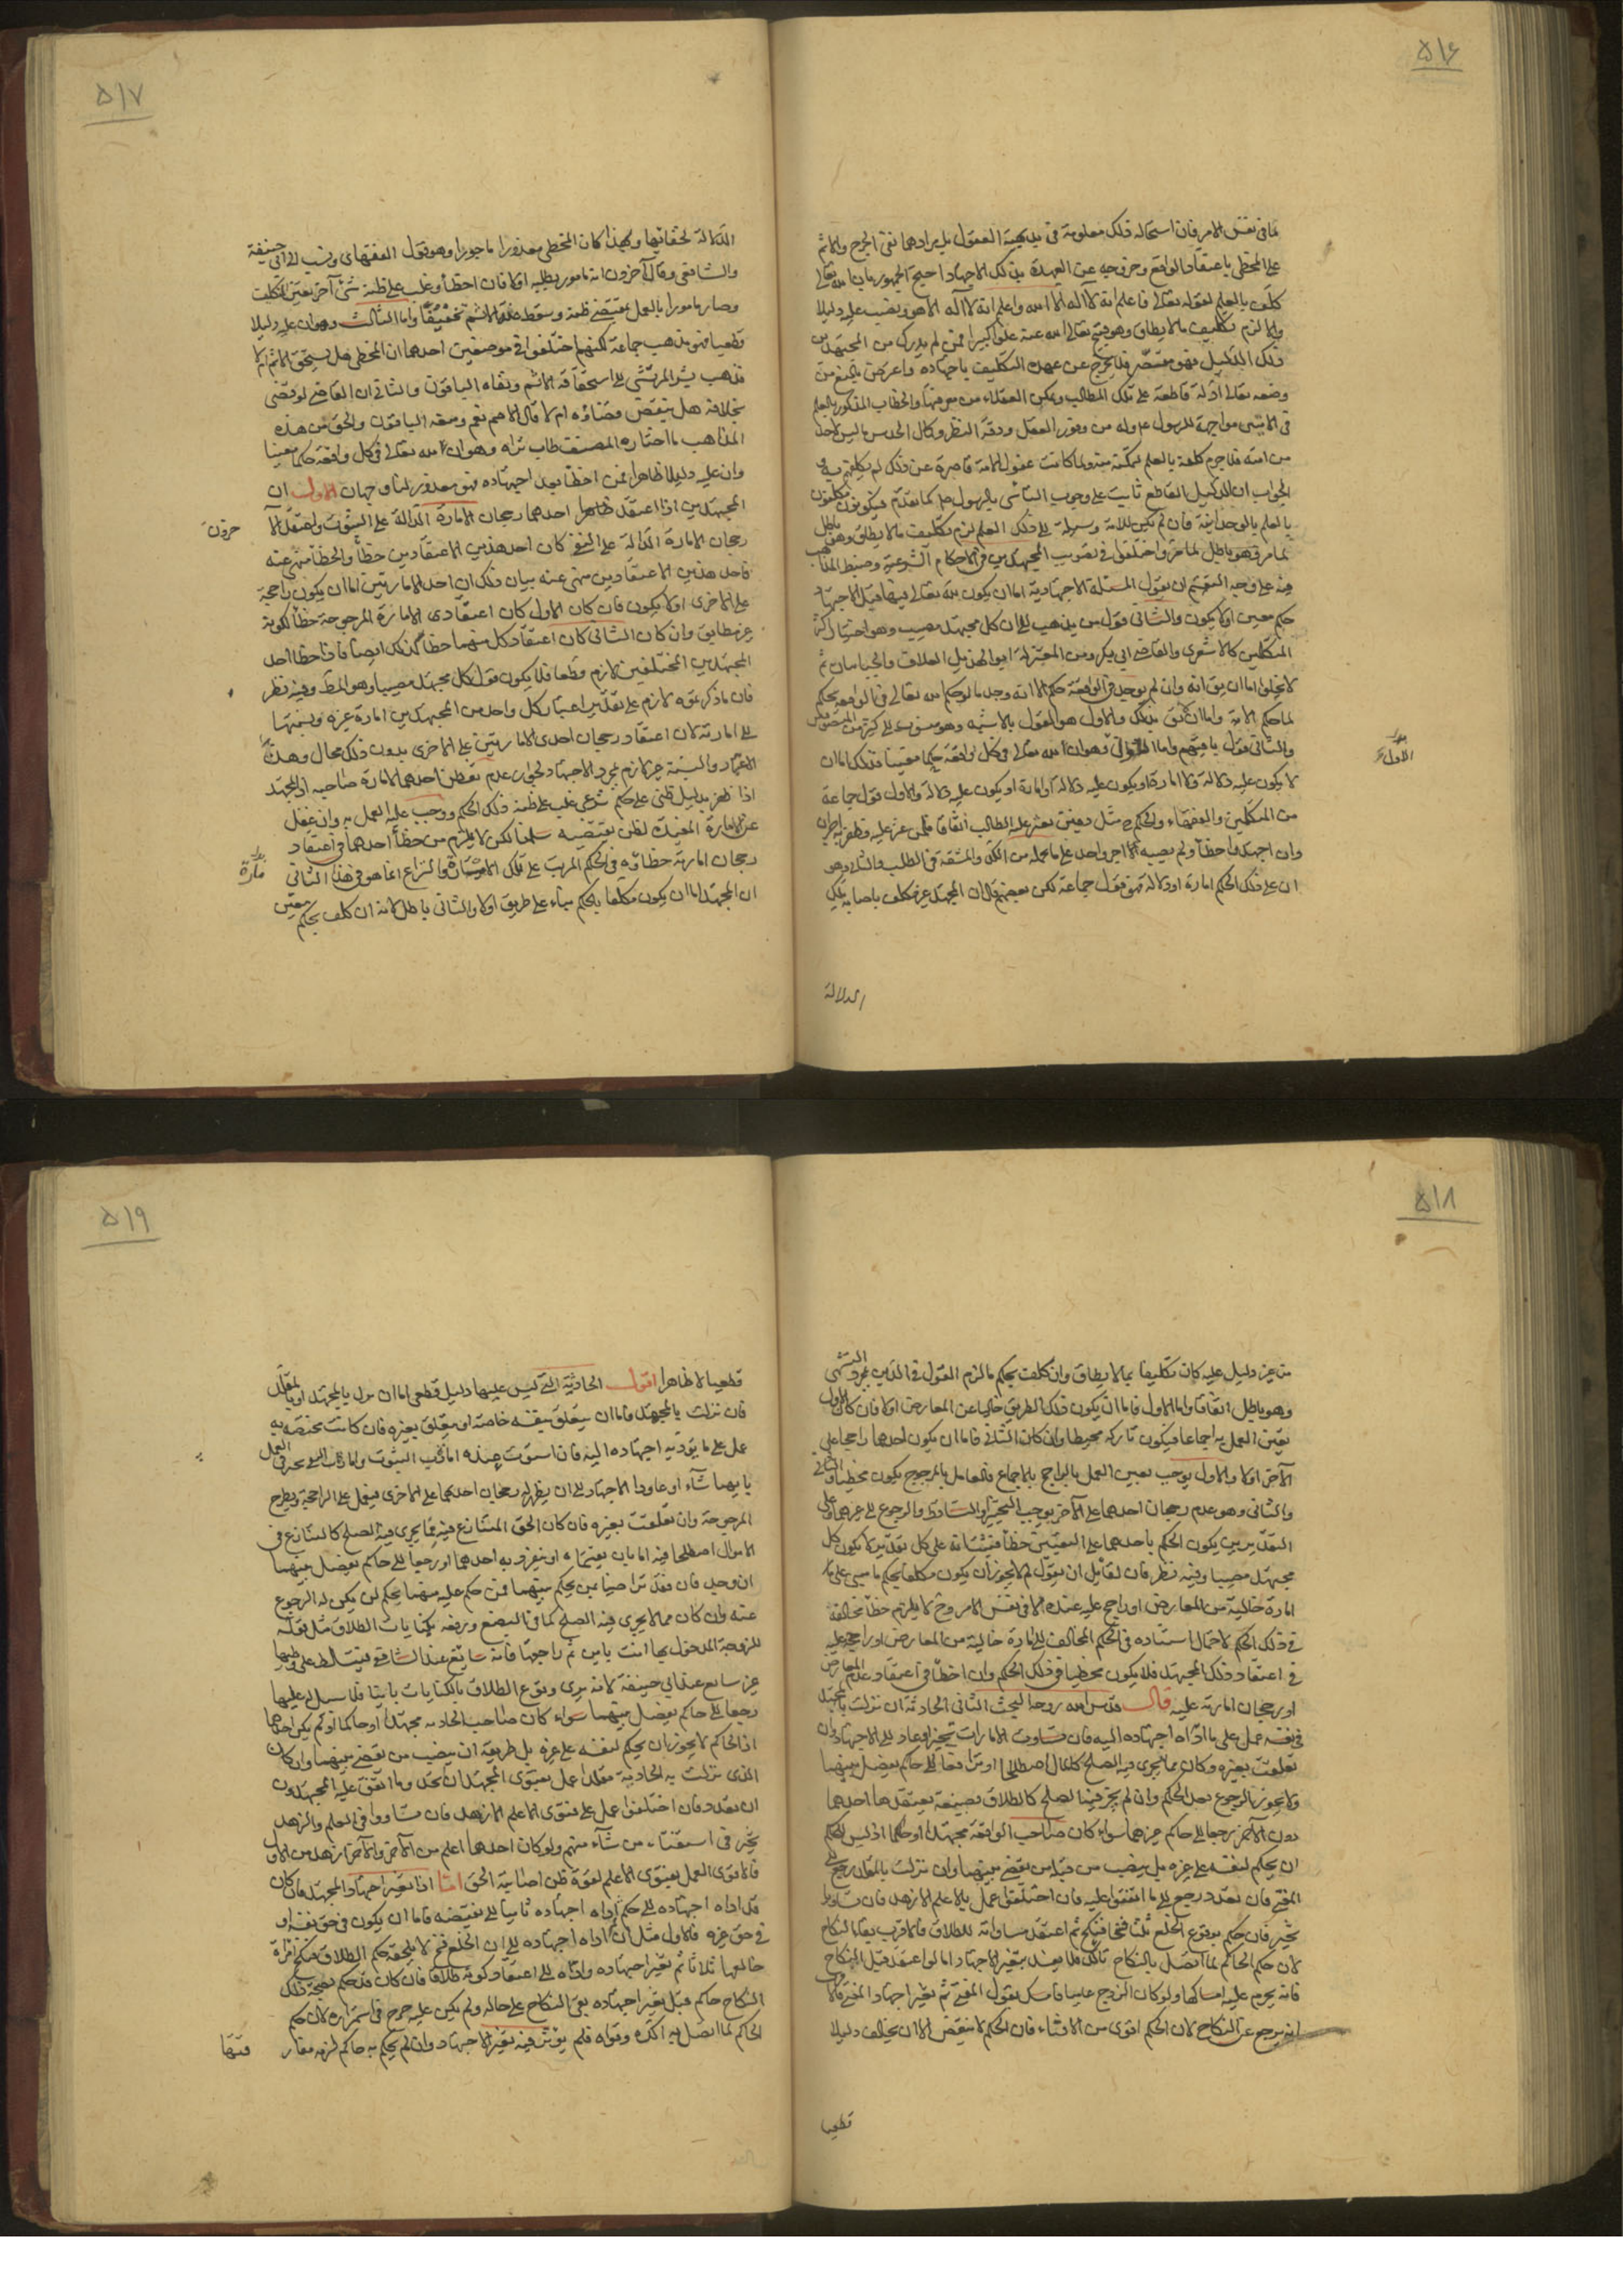 ٥١٦
لما فى نفس الامر فان استحالة ذلك معلومة فى بديهية العقول بل مرادهما نفى الحرج والاثم
على المخطى باعتقاد الواقع وخروجه عن العهدة بذلك الاجتهاد احتج الجمهور بان الله تعالى
كلف بالعلم لقوله تعالى فاعلم انه لا اله الا الله واعلم انه لا اله الا هو ونصب عليه دليلا
والا لزم تكليف ما لا يطاق وهو قبيح تعالى الله عنه علوا كبيرا فمن لم يدرك من المجتهدين
ذلك الدليل فهو مقصر فلا يخرج عن عهدة التكليف باجتهاده واعترض بالمنع من
وضعه تعالى ادلة قاطعة على تلك المطالب وتمكن العقلاء من معرفتها والخطاب المذكور بالعلم
فى الايتين مواجهة للرسول ع وله من وفور العقل ودقة النظر وكمال الحدس ما ليس لاحد
من امته فلا جرم كلفه بالعلم لتمكنه منه ولما كانت عقول الامة قاصرة عن ذلك لم يكلفهم به
الجواب ان الدليل القاطع ثابت على وجوب التأسى بالرسول صلم كما تقدم فيكونون مكلفون
بالعلم بالوحدانية فان لم يكن للامة وسيلة الى ذلك العلم لزم تكليف ما لا يطاق وهو باطل
لما مر فهو باطل لما مر واختلفوا فى تصويب المجتهدين فى الاحكام الشرعية وضبط المذاهب
فيه على وجه التقسيم ان يقول المسئلة الاجتهادية اما ان يكون لله تعالى فيها قبل الاجتهاد
حكم معين او لا يكون والثانى قول من يذهب الى ان كل مجتهد مصيب وهو اختيار اكثر
المتكلمين كالاشعرى والقاضى ابى بكر ومن المعتزلة ابو الهذيل العلاف والجبائيان ثم
لا يخلو اما ان يق انه وان لم يوجد فى الواقعة حكم الا انه وجد ما لو حكم الله تعالى فى الواقعة بحكم
لما حكم الا به واما ان لا يق بذلك والاول هو القول بالاشبه وهو منسوب الى كثير من المصوبين
والثانى قول باقيهم واما الاول وهو ان لله تعالى فى كل واقعة حكما معينا فذلك اما ان
لا يكون عليه دلالة ولا امارة او يكون عليه دلالة او امارة او يكون عليه دلالة والاول قول جماعة
من المتكلمين والفقهاء والحكم ح مثل دفين يعثر عليه الطالب اتفاقا فلمن عثر عليه وظفر به اجران
وان اجتهد واخطأ ولم يصبه له اجر واحد على ما تحمله من الكد والمشقة فى الطلب والثانى وهو
ان على ذلك الحكم امارة او دلالة فهو قول جماعة لكن بعضهم قال ان المجتهد غير مكلف باصابة تلك
الدلالة
٥١٧
الدلالة لخفائها ولهذا كان المخطى معذورا ماجورا وهو قول الفقهاء ونسب الى ابى حنيفة
والشافعى وقال آخرون انه مامور بطلبه اولا فان اخطأ وغلب على ظنه شئ آخر تعين التكليف
وصار مامورا بالعمل بمقتضى ظنه وسقط عنه الاثم تخفيفا واما الثالث وهو ان عليه دليلا
قطعيا فهو مذهب جماعة لكنهم اختلفوا فى موضعين احدهما ان المخطى هل يستحق الاثم ام لا
فذهب بشر المريسى الى استحقاقه الاثم ونفاه الباقون والثانى ان القاضى لو قضى
بخلافه هل ينقض قضاؤه ام لا قال الاصم نعم ومنعه الباقون والحق من هذه
المذاهب ما اختاره المصنف طاب ثراه وهو ان لله تعالى فى كل واقعة حكما معينا
وان عليه دليلا ظاهرا فمن اخطأ بعد اجتهاده فهو معذور لنا وجهان الاول ان
المجتهدين اذا اعتقد احدهما رجحان الامارة الدالة على الثبوت واعتقد الآ
خر رجحان الامارة الدالة على النفى كان احد هذين الاعتقادين خطأ والخطأ منهى عنه
فاحد هذين الاعتقادين منهى عنه بيان ذلك ان احدى الامارتين اما ان يكون راجحة
على الاخرى او لا يكون فان كان الاول كان اعتقاد ذى الامارة المرجوحة خطأ لكونه
غير مطابق وان كان الثانى كان اعتقاد كل منهما خطأ كذلك ايضا فاذا خطأ احد
المجتهدين المختلفين لازم قطعا فلا يكون قول كل مجتهد مصيبا وهو المط وفيه نظر
فان ما ذكرتموه لازم على تقدير اعتبار كل واحد من المجتهدين امارة غيره ونسبتها
الى امارته لان اعتقاد رجحان احدى الامارتين على الاخرى بدون ذلك محال وهذا
الاعتبار والنسبة غير لازم لمجرد الاجتهاد لجواز عدم تفطن احدهما لامارة صاحبه اذ المجتهد
اذا ظفر بدليل ظنى على حكم شرعى غلب على ظنه ذلك الحكم ووجب عليه العمل به وان غفل
عن الامارة المفيدة لظن نقيضه سلمنا لكن لا يلزم من خطأ احدهما فى اعتقاد
رجحان امارته خطاؤه فى الحكم المرتب على تلك الامارة والنزاع انما هو فى هذا الثانى
ان المجتهد اما ان يكون مكلفا بالحكم بناء على طريق او لا والثانى باطل لانه ان كلف بحكم معين
٥١٨
من غير دليل عليه كان تكليفا بما لا يطاق وان كلف بحكم ما لزم القول فى الدين بمجرد التشهى
وهو باطل اتفاقا واما الاول فاما ان يكون ذلك الطريق خاليا عن المعارض او لا فان كان الاول
تعين العمل به اجماعا فيكون تاركه مخطيا وان كان الثانى فاما ان يكون احدهما راجحا على
الآخر او لا والاول يوجب تعيين العمل بالراجح بالاجماع فالعامل بالمرجوح يكون مخطيا
والثانى وهو عدم رجحان احدهما على الآخر يوجب التخيير او التساقط والرجوع الى غيرهما وعلى
التقديرين يكون الحكم باحدهما على التعيين خطأ فثبت انه على كل تقدير لا يكون كل
مجتهد مصيبا وفيه نظر فان لقائل ان يقول لم لا يجوز ان يكون مكلفا بحكم ما مبنى على
امارة خالية من المعارض او راجح عليه عنده لا فى نفس الامر وح لا يلزم خطأ مخالفه
فى ذلك الحكم لاحتمال استناده فى الحكم المخالف الى امارة خالية من المعارض او راجح عليه
فى اعتقاد ذلك المجتهد فلا يكون مخطيا فى ذلك الحكم وان اخطأ فى اعتقاد عدم المعارض
او رجحان امارته عليه قال قدس الله روحه البحث الثانى الحادثة ان نزلت بالمجتهد
فى نفسه عمل على ما اداه اجتهاده اليه فان تساوت الامارات تخير او عاود الى الاجتهاد وان
تعلقت بغيره وكان مما يجرى فيه الصلح كالمال اصطلحا او ترافعا الى حاكم يفصل بينهما
ولا يجوز الرجوع بعد الحكم وان لم يجز فيه الصلح كالطلاق بصيغة يعتقدها احدهما
دون الآخر رجعا الى حاكم غيرهما سواء كان صاحب الواقعة مجتهدا او حاكما اذ ليس للحاكم
ان يحكم لنفسه على غيره بل ينصب من قبله من يقضى بينهما وان نزلت بالمقلد رجع الى
المفتى فان تعدد رجع الى ما اتفقوا عليه فان اختلفوا عمل بالاعلم الازهد فان تساويا
تخير فان حكم بوقوع الخلع ثلث فسخا فنكح ثم اعتقد مساواته للطلاق فالاقرب بقاء النكاح
لان حكم الحاكم لما اتصل بالنكاح تاكد فلا يفسد بتغير الاجتهاد اما لو اعتقد قبل النكاح
فانه يحرم عليه امساكها ولو كان الزوج عاميا فامسك بقول المفتى ثم تغير اجتهاد المفتى فالاقرب
انه يرجع عن النكاح لان الحكم اقوى من الافتاء فان الحكم لا ينقض الا ان يخالف دليلا
قطعيا
٥١٩
قطعيا لا ظاهرا اقول الحادثة التى ليس عليها دليل قطعى اما ان تنزل بالمجتهد او بالمقلد
فان نزلت بالمجتهد فاما ان يتعلق بنفسه خاصة او يتعلق بغيره فان كانت مختصة به
عمل على ما يؤديه اجتهاده اليه فان استوت عنده
بايهما شآء او عاود الاجتهاد الى ان يظهر له رجحان احدهما على الاخرى فيعمل على الراجحة ويطرح
المرجوحة وان تعلقت بغيره فان كان الحق المتنازع فيه مما يجرى فيه الصلح كالتنازع فى
الاموال اصطلحا فيه اما بان يقتسماه او ينفرد به احدهما او رجعا الى حاكم يفصل بينهما
ان وجد فان فقد تراضيا بمن يحكم بينهما فمن حكم عليه منهما بحكم لم يكن له الرجوع
عنه وان كان مما لا يجرى فيه الصلح كما فى البضع ورفعه بكنايات الطلاق مثل قوله
للزوجة المدخول بها انت باين ثم راجعها فانه سايغ عند الشافعى فيتسلط على وطيها
غير سايغ عند ابى حنيفة لانه يرى وقوع الطلاق بالكنايات باينا فلا سبيل له عليها
رجعا الى حاكم يفصل بينهما سواء كان صاحب الحادثة مجتهدا او حاكما او لم يكن احدهما
اذ الحاكم لا يجوز ان يحكم لنفسه على غيره بل طريقه ان ينصب من يقضى بينهما وان كان
الذى نزلت به الحادثة مقلدا عمل بفتوى المجتهد ان اتحد وما اتفق عليه المجتهدون
ان تعدد فان اختلفوا عمل على فتوى الاعلم الازهد فان تساووا فى العلم والزهد
تخير فى استفتاء من شآء منهم ولو كان احدهما اعلم من الآخر والآخر ازهد من الاول
فالاقوى العمل بفتوى الاعلم لقوة ظن اصابته الحق اما اذا تغير اجتهاد المجتهد فان كان
قد اداه اجتهاده الى حكم ثم اداه اجتهاده ثانيا الى نقيضه فاما ان يكون فى حق نفسه او
فى حق غيره فالاول مثل ان اداه اجتهاده الى ان الخلع فسخ لا يلحقه حكم الطلاق فنكح امرأة
خالعها ثلاثا ثم تغير اجتهاده واداه الى اعتقاد كونه طلاقا فان كان قد حكم بصحة ذلك
النكاح حاكم قبل تغير اجتهاده بقى النكاح على حاله ولم يكن عليه حرج فى استمراره لان حكم
الحاكم لما اتصل به اكده وقواه فلم يؤثر فيه تغير الاجتهاد وان لم يحكم به حاكم لزمه مفار
قتها